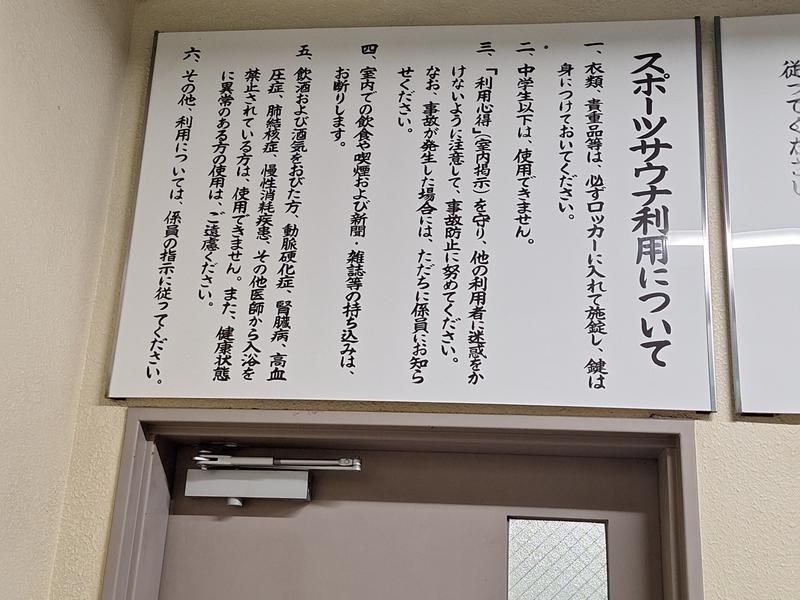 スポーツサウナ利用について
一、衣類、貴重品等は、必ずロッカーに入れて施錠し、鍵は
身につけておいてください。
二、中学生以下は、使用できません。
三、「利用心得」(室内掲示)を守り、他の利用者に迷惑をか
けないように注意して、事故防止に努めてください。
なお、事故が発生した場合には、ただちに係員にお知ら
せください。
四、室内での飲食や喫煙および新聞・雑誌等の持ち込みは、
お断りします。
五、飲酒および酒気をおびた方、動脈硬化症、腎臓病、高血
圧症、肺結核症、慢性消耗疾患、その他医師から入浴を
禁止されている方は、使用できません。また、健康状態
に異常のある方の使用は、ご遠慮ください。
六、その他、利用については、係員の指示に従ってください。
従ってください